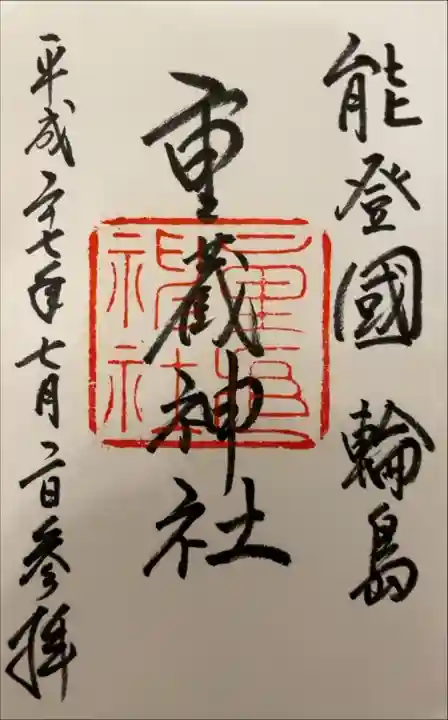 能登國 輪島
重蔵神社
平成二十七年七月二日参拝
重蔵神社